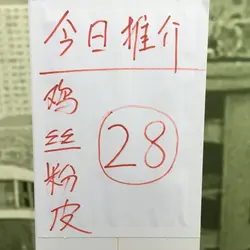 今日推介
鸡丝粉皮
28